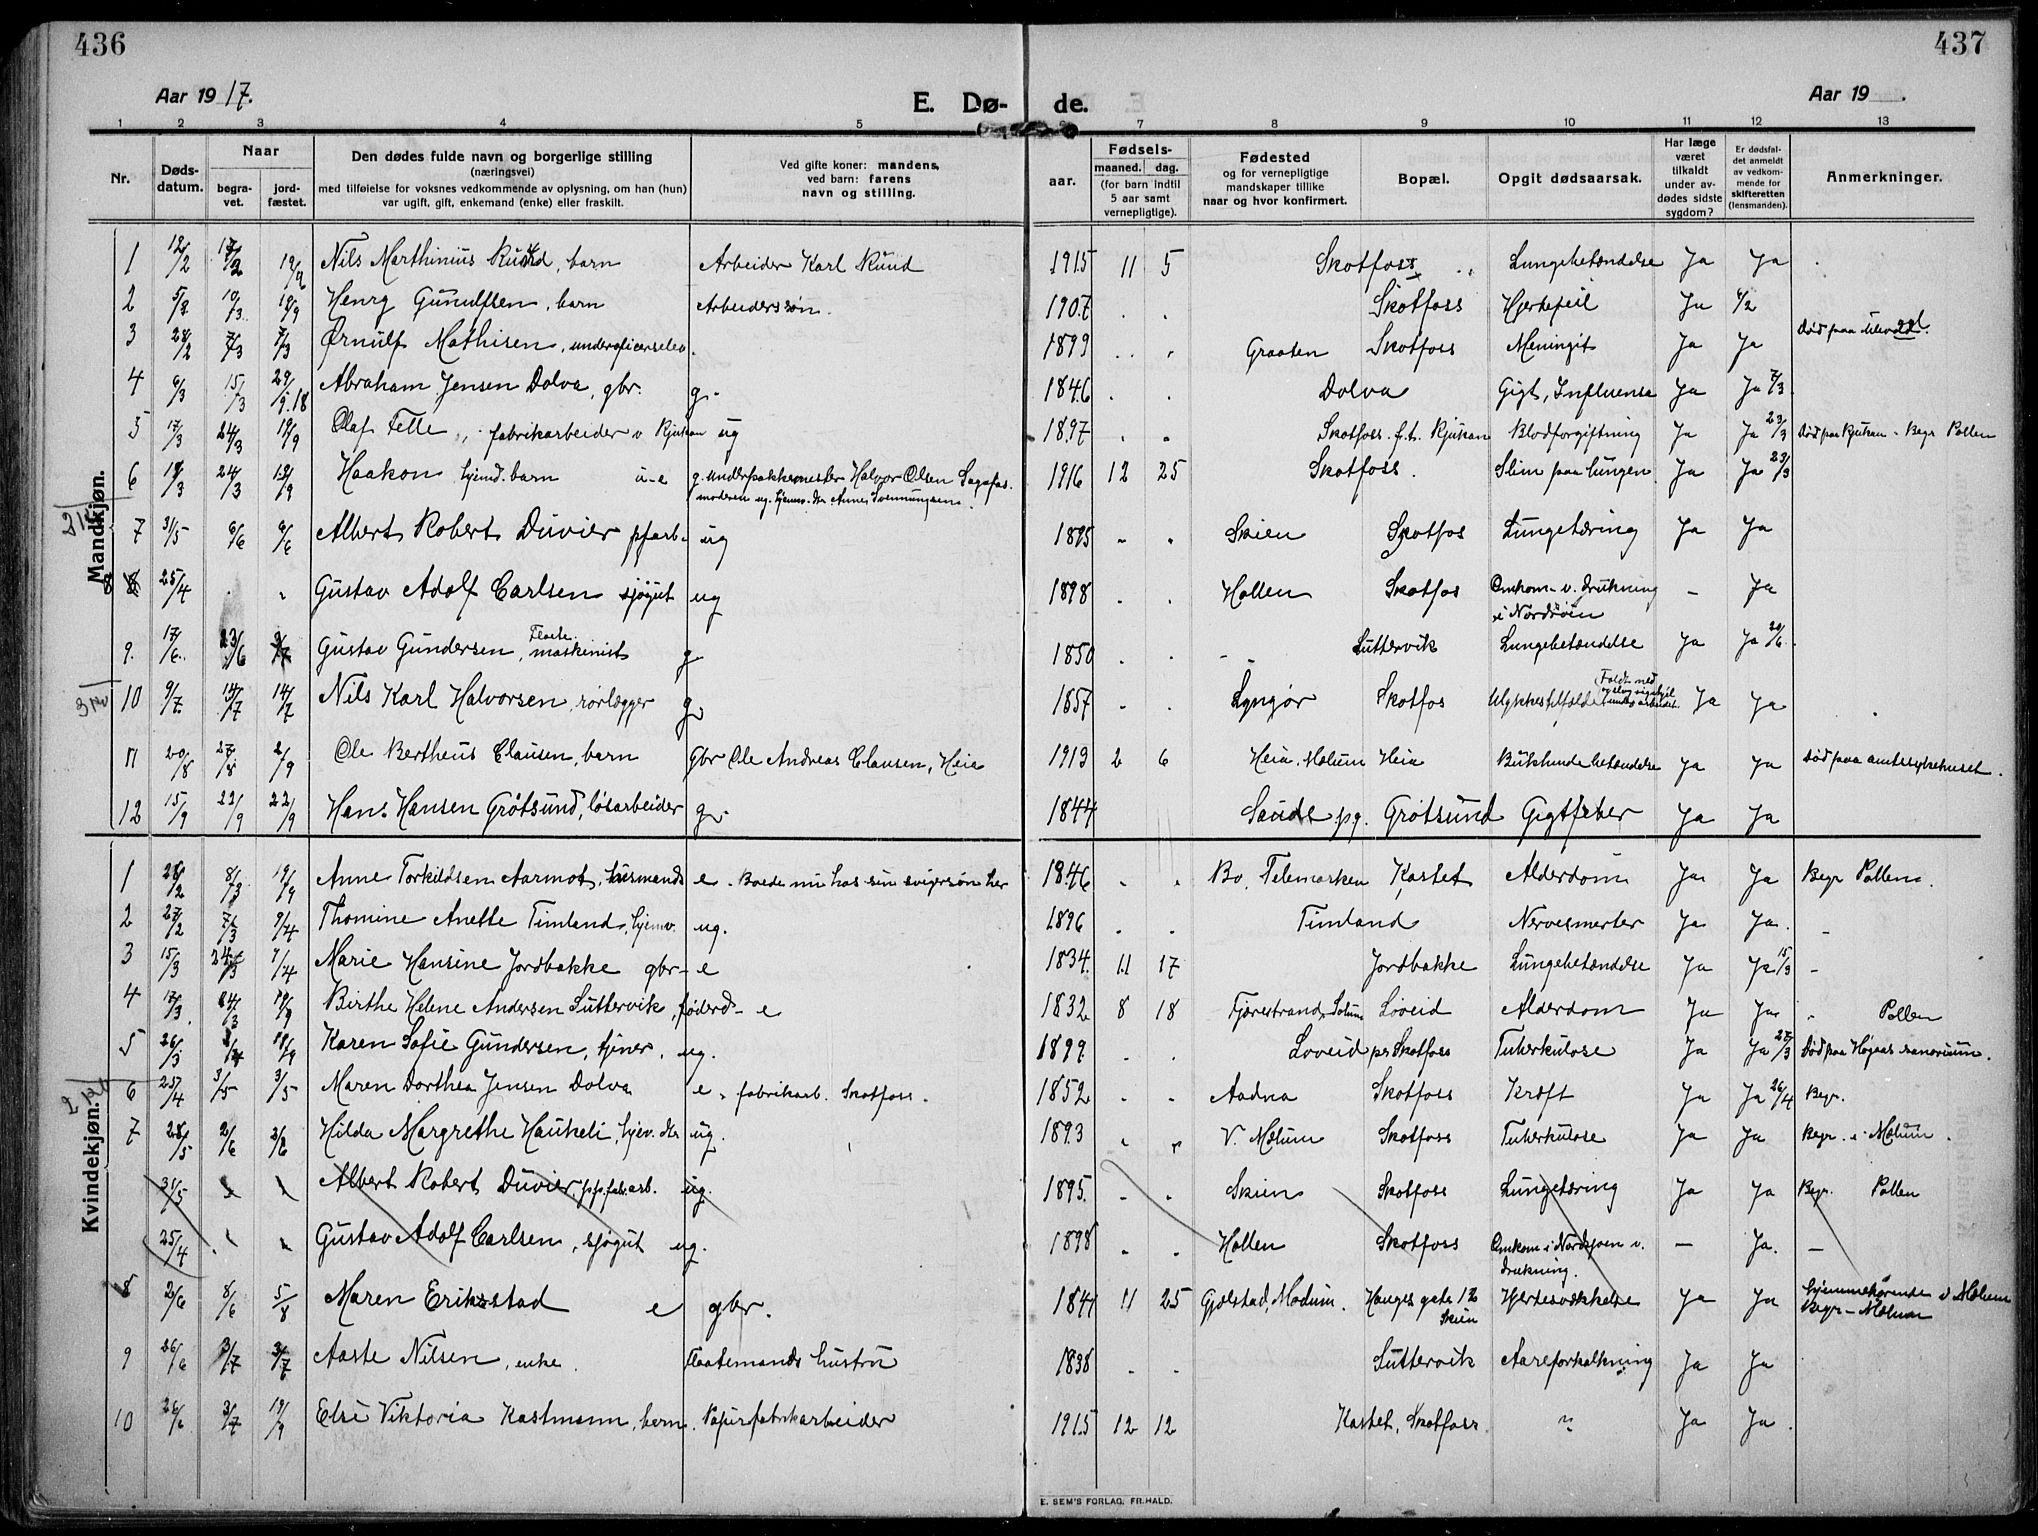 436
437
Aar 1917.
E. Dø-
de.
Aar 19 .
1 2 3 4 5 6 7 8 9 10 11 12 13
Nr.
Døds-datum.
Naar
begra-vet.
jord-fæstet.
Den dødes fulde navn og borgerlige stilling
(næringsvei)
med tilføielse for voksnes vedkommende av oplysning, om han (hun)
var ugift, gift, enkemand (enke) eller fraskilt.
Ved gifte koner: mandens,
ved barn: farens
navn og stilling.
Fødsels-
aar.
maaned.
dag.
(for barn indtil
5 aar samt
vernepligtige).
Fødested
og for vernepligtige
mandskaper tillike
naar og hvor konfirmert.
Bopæl.
Opgit dødsaarsak.
Har læge
været
tilkaldt
under av-
dødes sidste
sygdom?
Er dødsfal-
det anmeldt
av vedkom-
mende for
skifteretten
(lensmanden).
Anmerkninger.
Mandkjøn.
1 12/2 17/2 19/9 Nils Marthinius Ruud, barn Arbeider Karl Ruud 1915 11 5 Skotfoss Lungebetændelse Ja Ja
2 5/3 10/3 19/9 Henry Gunulfsen, barn Arbeidersøn. 1907 Skotfoss Hjertefeil Ja 6/2
3 28/2 7/3 7/3 Ørnulf Mathisen, underoficerselev. 1899 Graaten Skotfoss Meningit Ja Ja Død paa Ulevaal.
4 6/3 15/3 29/9.18 Abraham Jensen Dolva, gbr. g. 1846 Dolva Gigt, Influensa Ja Ja 7/3
5 17/3 24/3 19/9 Olaf Felle, fabrikarbeider v Rjukan ug 1897 Skotfoss. f.t. Rjukan Blodforgiftning Ja Ja 23/3 Død paa Rjukan - Begr Pollen
6 19/3 24/3 19/9 Haakon hjemd. barn u-e g. underpakkemester Halvor Olsen 1916 12 25 Skotfoss. Slim paa lungen Ja Ja 23/3
moderen ug. hjemv. dtr Anne Svennungsen.
7 31/5 6/6 6/6 Albert Robert Duvier pfarb. ug 1895 Skien Skotfos Lungetæring Ja Ja
8 25/4 Gustav Adolf Carlsen sjøgut ug 1898 Hollen Skotfos Omkom v. drukning - Ja
i Nordsøen
9. 17/6 23/6 Gustav Gundersen, Flaate maskinist g 1850 Luttervik Lungebetændelse Ja Ja 20/6
10 9/7 14/7 14/7 Nils Karl Halvorsen, rørlægger g 1857 Lyngør Skotfos Ulykkestilfælde Faldt ned under arbeidet Ja Ja
11 20/8 27/8 2/9 Ole Bertheus Clausen, barn Gbr Ole Andreas Clausen, Heia 1913 2 6 Heia, Mælum Heia Bukhindebetændelse Ja Ja Død paa amtssykehuset.
12 15/9 22/9 22/9 Hans Hansen Grøtsund, løsarbeider g. 1844 Saude pg. Grøtsund Gigtfeber Ja Ja
Kvindekjøn.
1 28/2 8/3 19/9 Anne Torkildsen Aarmot, husmands e. Boede nu hos sin svigersøn her 1846 Bø, Telemarken Kastet Alderdom Ja Ja Begr Pollen.
2 27/2 7/3 9/4 Thomine Anette Timland, hjemv. ug. 1896 Timland Nervesmerter Ja Ja. -
3 15/3 24/3 9/4 Marie Hansine Jordbakke gbr- e 1834. 11 17 Jordbakke Lungebetændelse Ja Ja 15/3 -
4 17/3 24/3 19/9 Birthe Helene Andersen Luttervik, føderd- e 1832 8 18 Fjærestrand, Solum Løveid Alderdom Ja Ja Pollen
5 26/3 19/9 Karen Sofie Gundersen, tjener. ug. 1899. Løveid pr Skotfoss Tuberkulose Ja Ja 27/3 Død paa Høgaas sanorium.
6 25/4 3/5 3/5 Maren Dorthea Jensen Dolva e, fabrikarb. Skotfoss. 1852 Aadna Skotfoss Kræft Ja Ja 26/4 Begr.
7 28/5 2/6 2/6 Hilda Margrethe Haukeli, hjev. dtr ug. 1893 V. Mælum Skotfoss Tuberkulose Ja Ja Begr. i Mælum.
31/5 Albert Robert Duvier, pp.fab.arb. ug. 1895. Skien Skotfoss Lungetæring Ja Ja Begr. Pollen
25/4 Gustav Adolf Carlsen, sjøgut ug. 1898 Hollen Skotfoss Omkom i Nordsjøen v. - Ja. -
drukning.
8 2/6 8/6 5/8 Maren Erikstad e gbr. 1841 11 25 Gjølstad, Modum. Hauges gate 12 Hjertesvækkelse Ja Ja hjemmehørende v Mælum
Skien Begr - Mælum
9 26/6 3/7 3/7 Aaste Nilsen, enke. Flaatemands hustru 1838 Luttervik Aareforkalkning Ja Ja
10 26/6 3/7 19/9 Else Viktoria Kastmann, barn. Papirfabrikarbeider 1915 12 12 Kastet, Skotfoss. " Ja Ja
E. SEM'S FORLAG, FR.HALD.